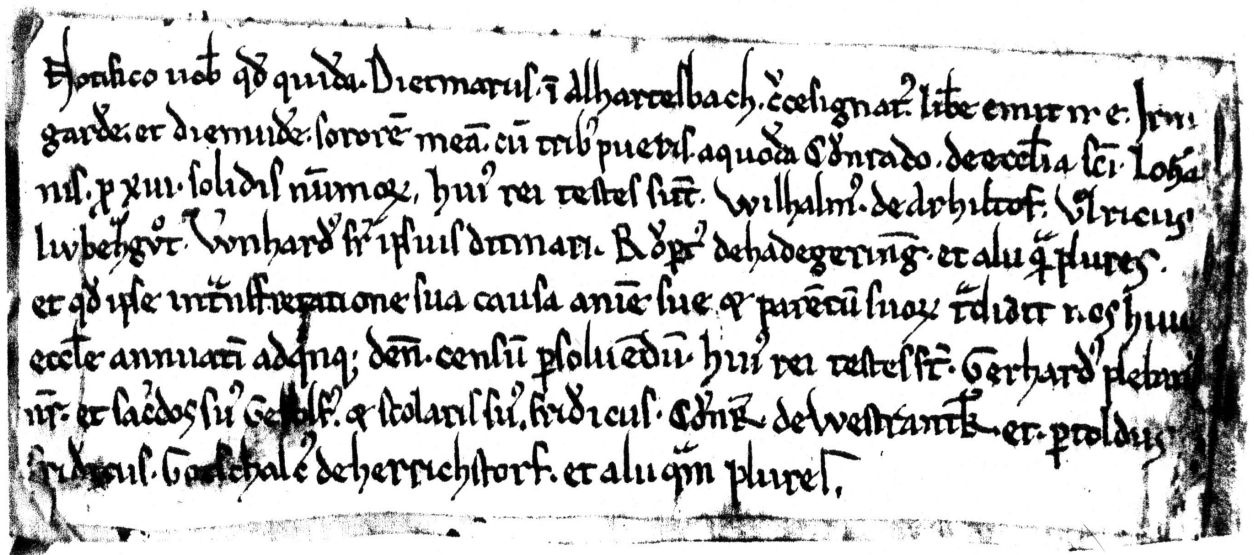 Notifico uob̄ qd̄ quida. Dietmarus. ī Alhartesbach. c̄cesignatꝰ. lib̄e emit Irm
gardē. et diemudē. sororē meā. cū tribꝰ pueris. a quodā Cōnrado. de eccl̄ia sc̄i. Ioha
nis. ꝓ xiii. solidis nūmoꝝ, huiꝰ rei testes sūt. Wilhalmꝰ. de Arhiltof. Vͦlricus
liubenhgvͦt. Wnhardꝰ fr̄ ipsius ditmari. de hadegerinḡ. et alii qͣplures.
et qd̄ ipse in sua causa anīe sue ⁊ parētū suoꝝ tͣdidit huiu
eccl̄e annuatī ad qͥnqꝫ den̄. censū ꝑsoluēdū. huiꝰ rei testes st̄. Gerhardꝰ plebanꝰ
nr̄. et sac̄dos suꝰ ⁊ scolaris suꝰ. fridicus. Cōnr̄ de Westrantk̄. et. ꝑtoldus
fridicus. Gotschalcꝰ de herrichstorf. et alii qͣm plures.